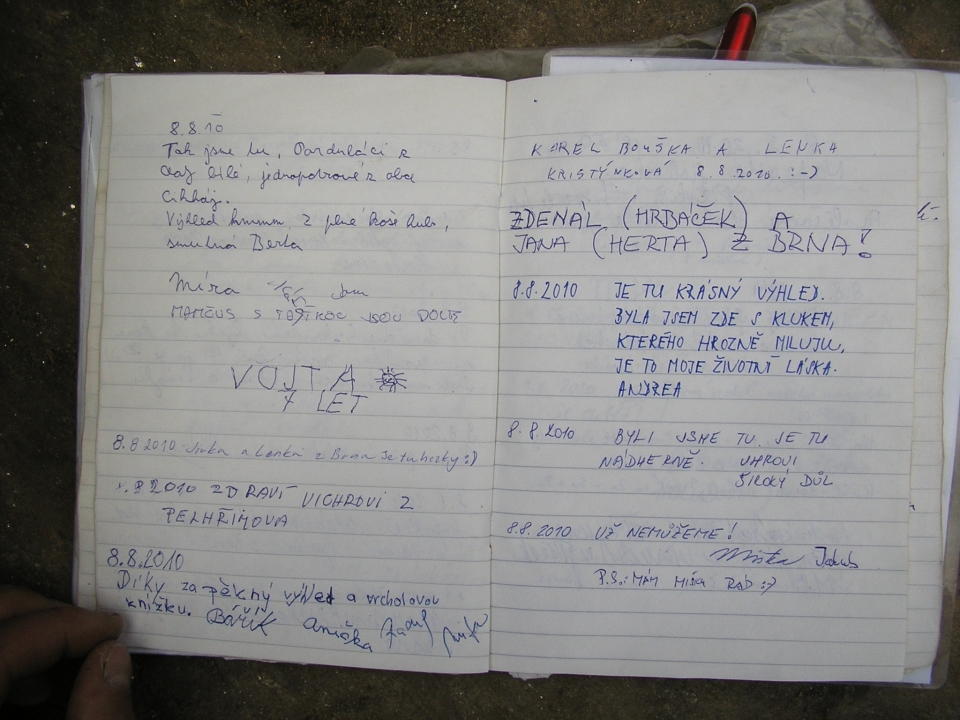 8.8.10
Tak jsme tu, Parduláci z
bílé, jednopatrové z obce
Výhled hmmm, z plné koše hub,
smutná Berta
Míra Jana
MAMČUS S TAŤKOU JSOU DOLE
VOJTA
7 LET
8.8 2010 Jirka a Lenka z Brna Je tu hezky :)
8.2010 ZDRAVÍ VICHROVI Z
PELHŘIMOVA
8.8.2010
Díky za pěkný výhled a vrcholovou
knížku. Bářík Anička
KAREL BOUŠKA A LENKA
KRISTÝNKOVÁ 8.8.2010. :-)
ZDENÁL (HRBÁČEK) A
JANA (HERTA) Z BRNA!
8.8.2010 JE TU KRÁSNÝ VÝHLED.
BYLA JSEM ZDE S KLUKEM,
KTERÉHO HROZNĚ MILUJU,
JE TO MOJE ŽIVOTNÍ LÁSKA.
ANDREA
8.8.2010 BYLI JSME TU. JE TU
NÁDHERNĚ. UHROVI
ŠIROKÝ DŮL
8.8.2010 UŽ NEMŮŽEME!
Miška Jakub
P.S.: MÁM MIŠKU RÁD :)